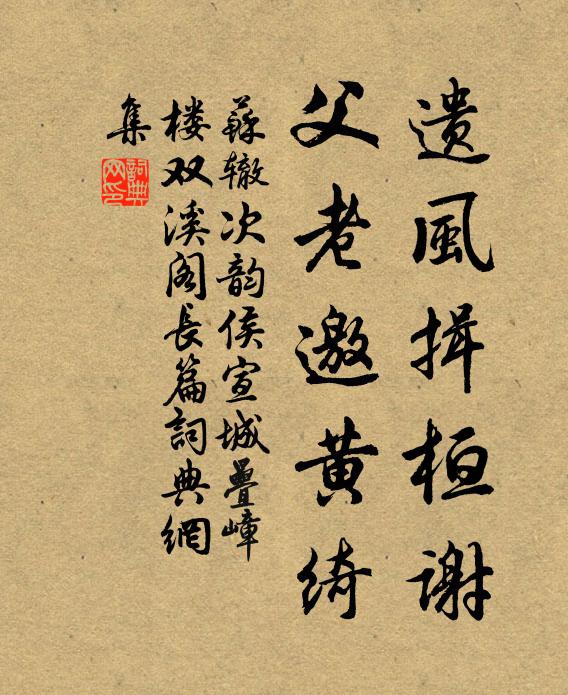 遗風揖桓谢
父老邀黄绮
蘇辙次韵侯宣城疊嶂
楼双溪阁長篇詞典網
集
詞典
网印